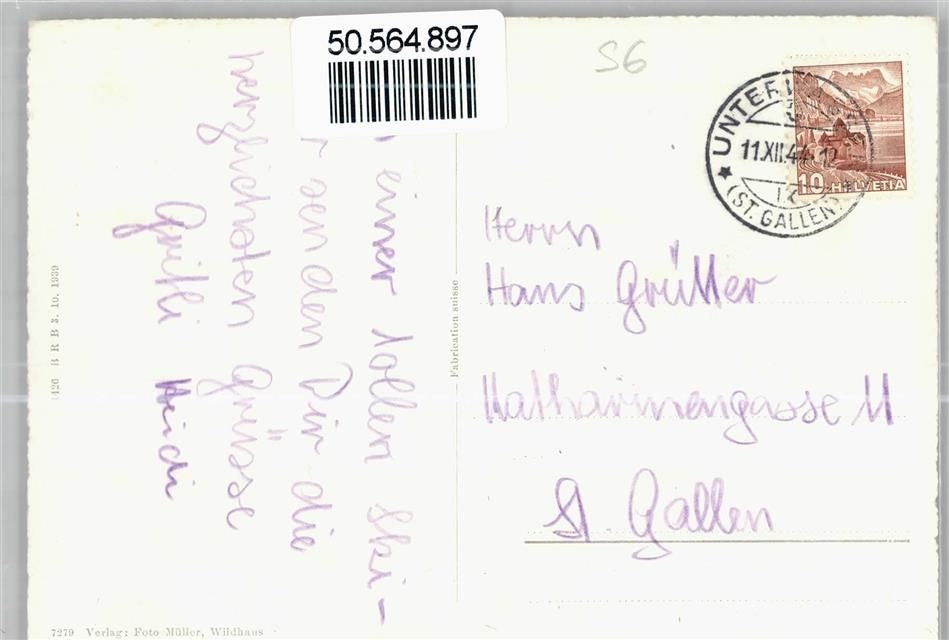 50.564.897
S6
UNTER
11.XII.44 12
(ST. GALLEN)
10 HELVETIA
einer tollen Ski-
senden Dir die
herzlichsten Grüsse
Gritli Heidi
Herrn
Hans Grütter
Katharinengasse 11
St. Gallen
Fabrication suisse
B R B 3. 10. 1939
7279 Verlag: Foto Müller, Wildhaus